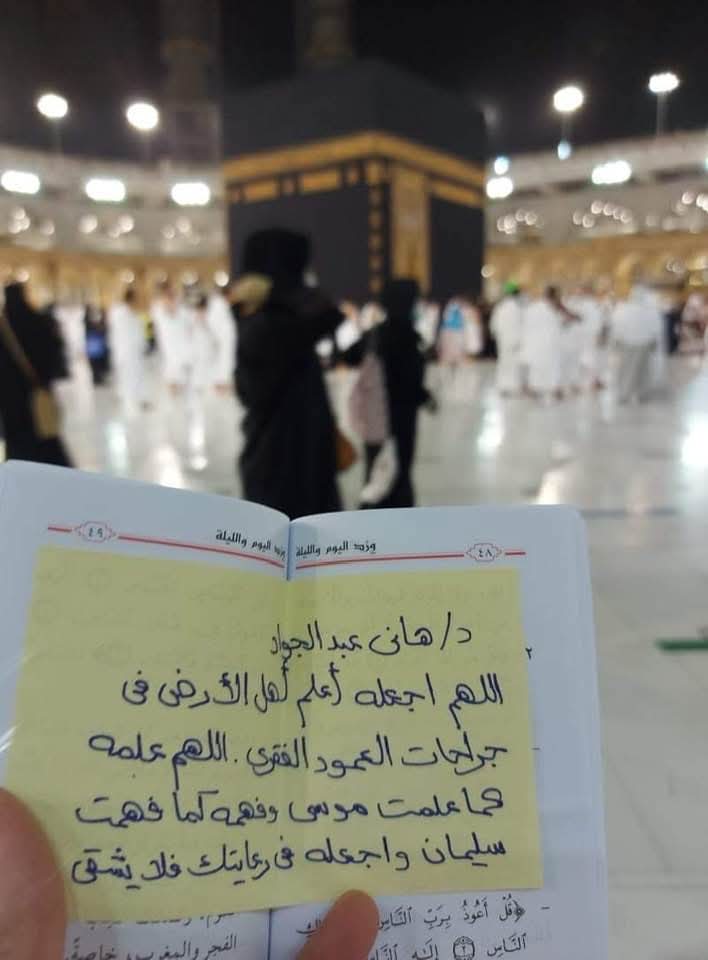 ورد اليوم والليلة
٤٨
ورد اليوم والليلة
٤٩
د/ هانى عبد الجواد
اللهم اجعله أعلم أهل الأرض فى
جراحات العمود الفقرى . اللهم علمه
كما علمت موسى وفهمه كما فهمت
سليمان واجعله فى رعايتك فلا يشقى
﴿قُلْ أَعُوذُ بِرَبِّ النَّاسِ
النَّاسِ ٢ إِلَهِ النَّاسِ
الفجر والمغرب، خاصةً